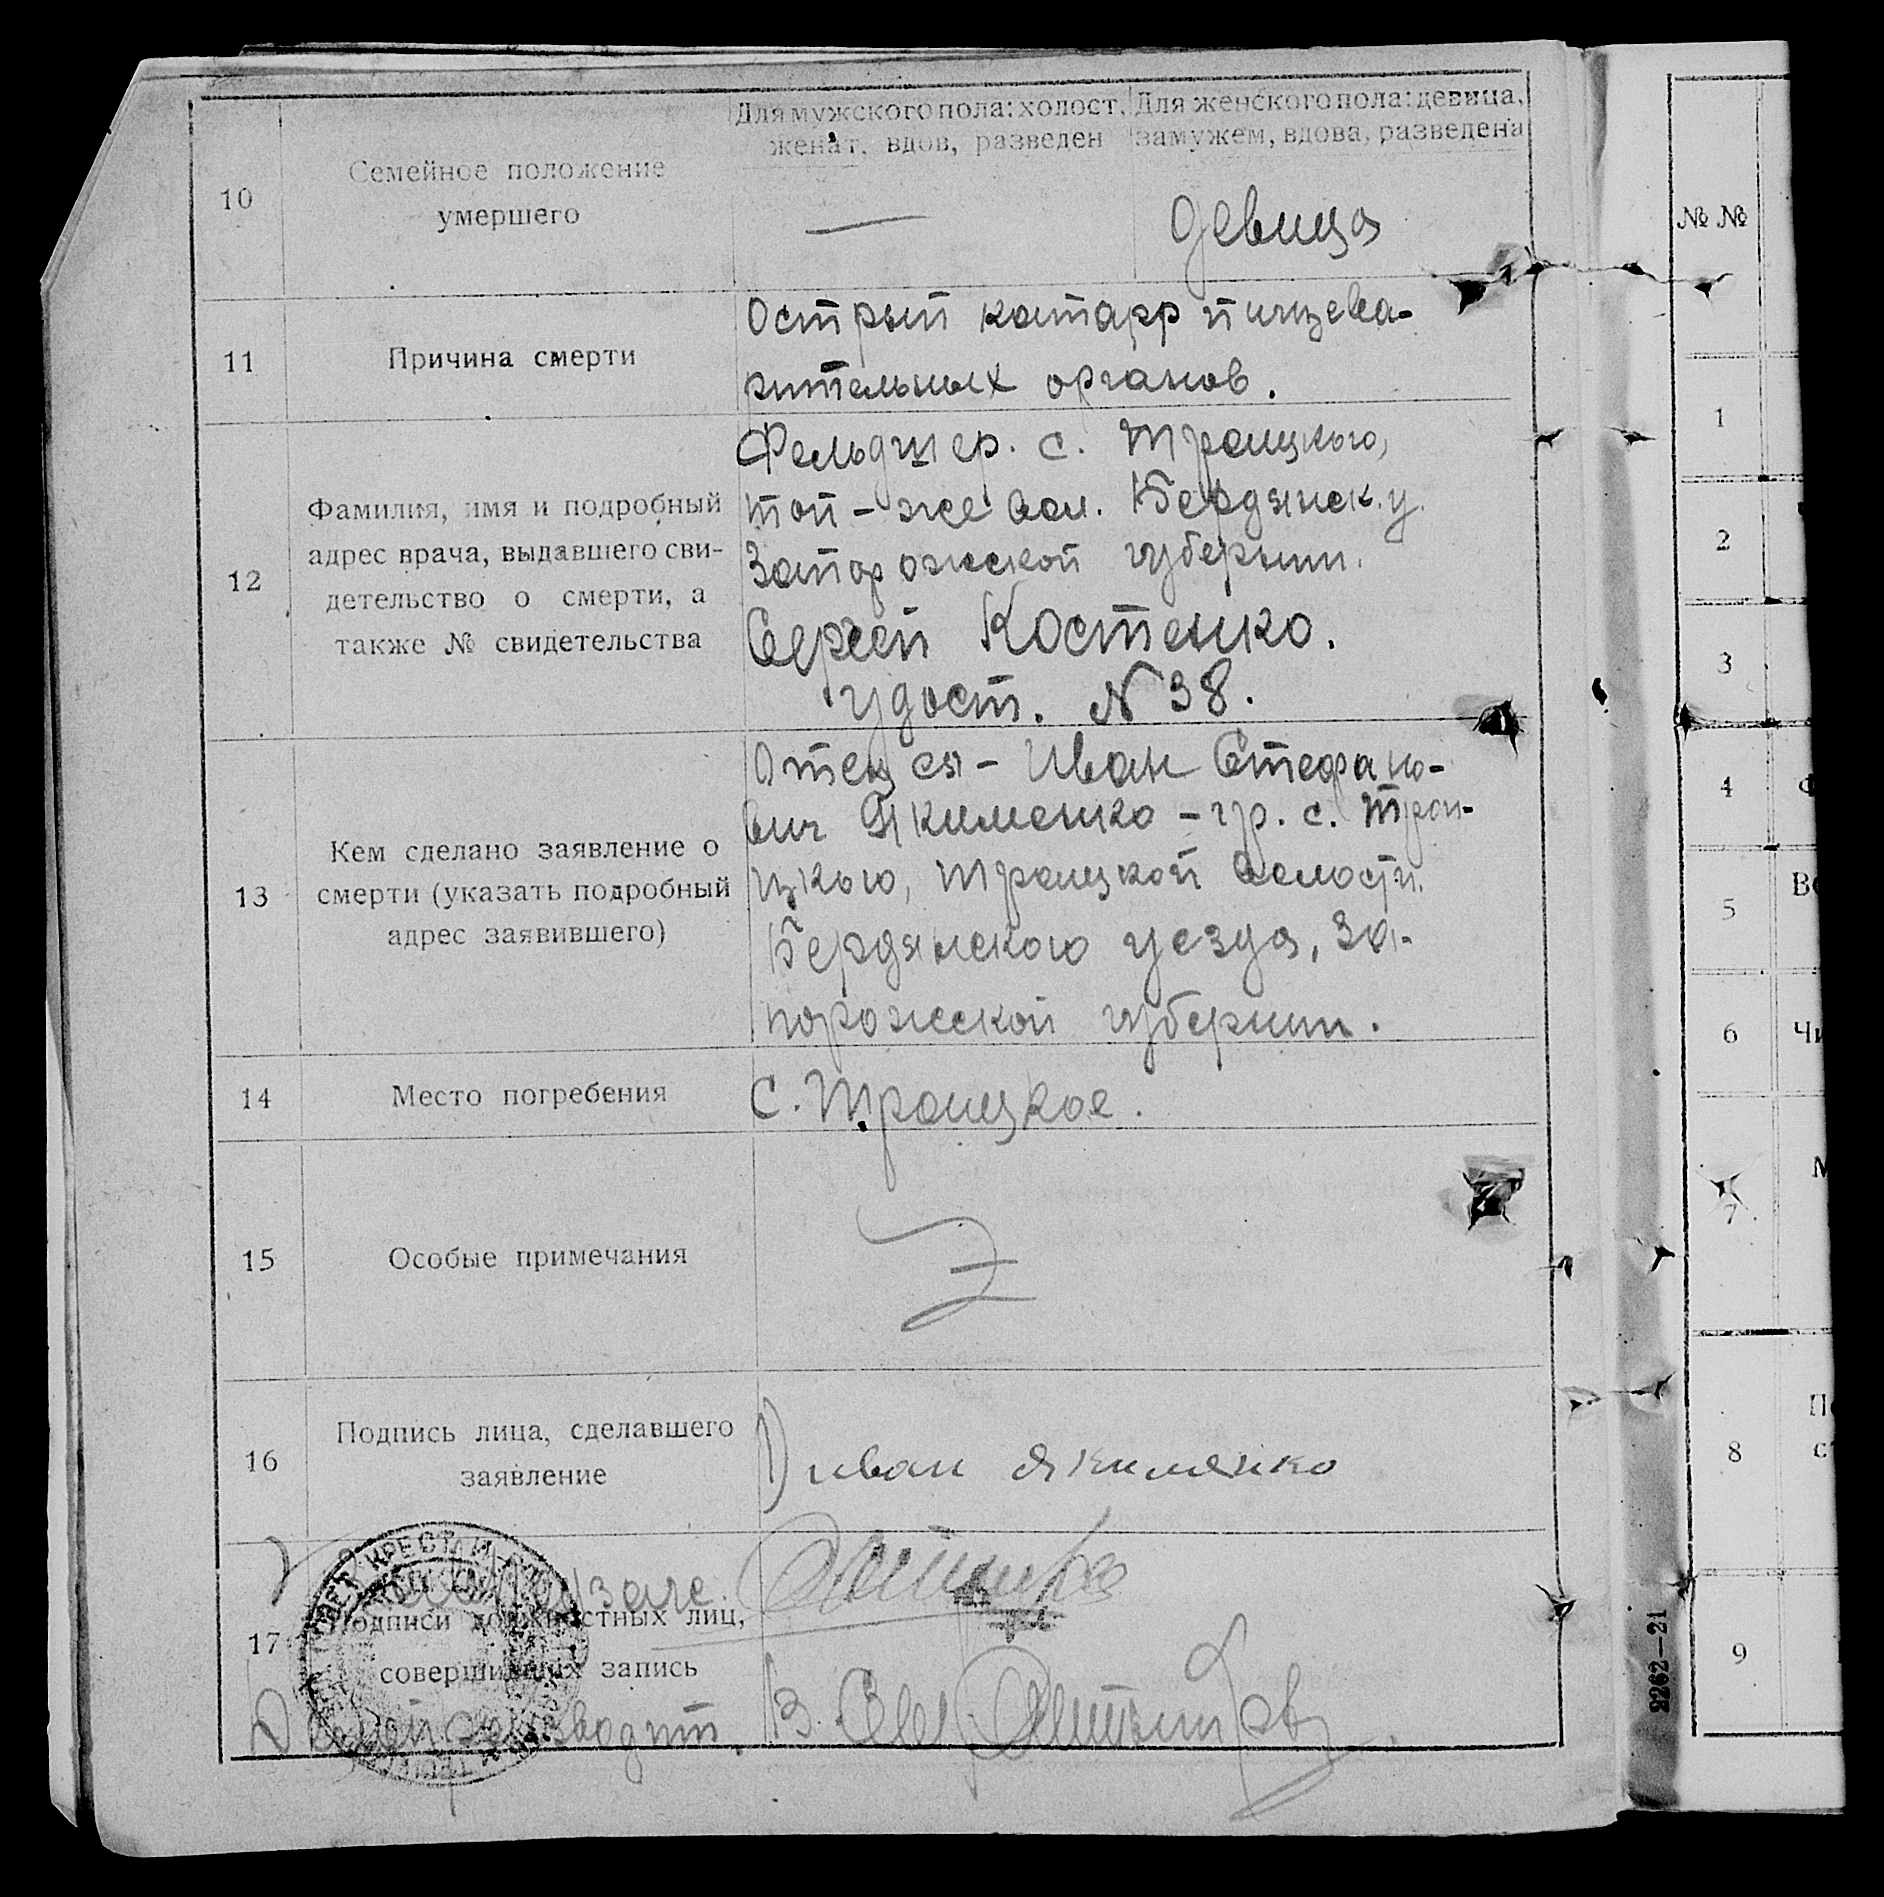 Для мужского пола: холост, женат, вдов, разведен
Для женского пола: девица, замужем, вдова, разведена
10
Семейное положение
умершего
—
девица
11
Причина смерти
Острый катарр пищева-
рительных органов.
12
Фамилия, имя и подробный
адрес врача, выдавшего сви-
детельство о смерти, а
также № свидетельства
Фельдшер. с. Троицкого,
той-же вол. Бердянск. у.
Запорожской губернии.
Сергей Костенко.
удост. N 38.
13
Кем сделано заявление о
смерти (указать подробный
адрес заявившего)
Отец ея - Иван Стефано-
вич Якименко - гр. с. Трои-
цкого, Троицкой волости.
Бердянского уезда, За-
порожской губернии.
14
Место погребения
С. Троицкое.
15
Особые примечания
16
Подпись лица, сделавшего
заявление
1) иван Якименко
17
Подписи должностных лиц,
совершивших запись
№ №
1
2
3
4
5
6
7
8
9
2262—21